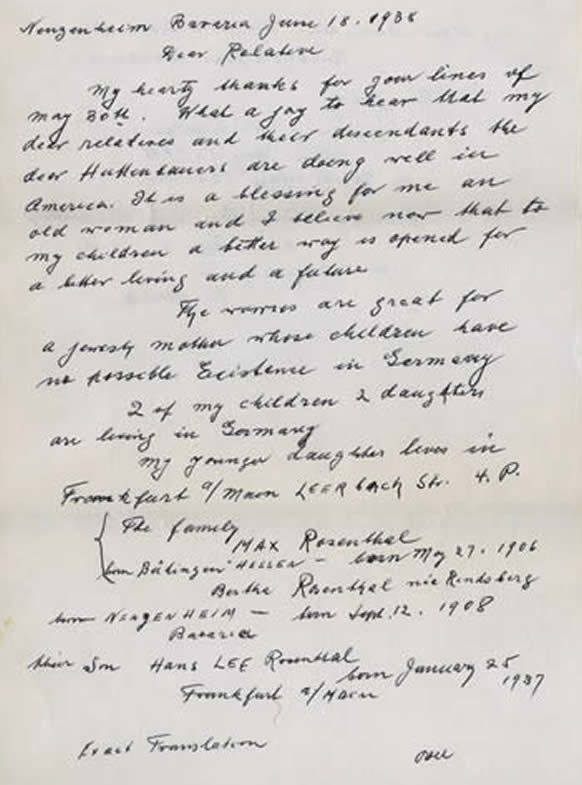 Neuzenheim Bavaria June 18. 1938
Dear Relative
My hearty thanks for your lines of
may 30th. What a joy to hear that my
dear relatives and their descendants the
dear Huttenbauers are doing well in
America. It is a blessing for me an
old woman and I believe now that to
my children a better way is opened for
a better living and a future
The worries are great for
a jewesh mother whose children have
no possible Existence in Germany
2 of my children 2 daughters
are living in Germany
my younger daughter lives in
Frankfurt a/Main LEERbach Str. 4. P.
The family
MAX Rosenthal
born HESSEN - born May 27. 1906
Bertha Rosenthal nie Rindsberg
born NEUZENHEIM - born Sept. 12. 1908
Bavaria
their Son Hans LEE Rosenthal
born January 25
1937
Frankfurt a/Main
Exact Translation